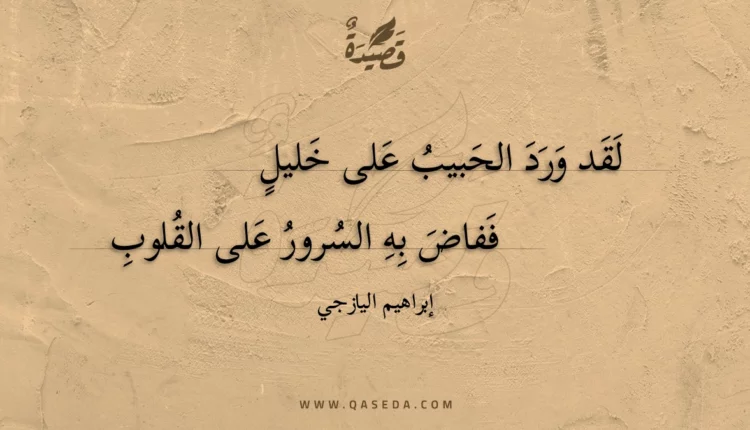 قَصِيدَةٌ
لَقَد وَرَدَ الحَبيبُ عَلى خَليلٍ
فَفاضَ بِهِ السُرورُ عَلى القُلوبِ
إبراهيم اليازجي
WWW.QASEDA.COM